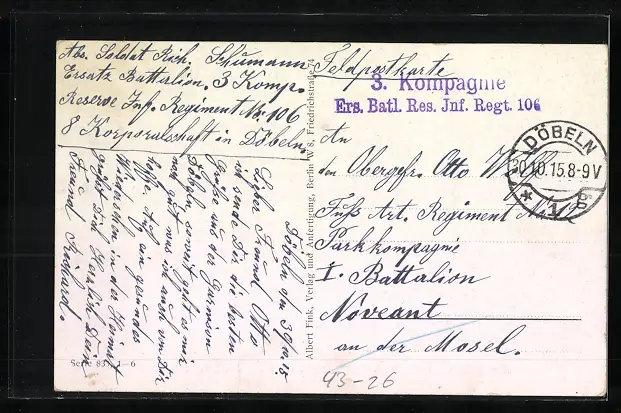 Abs. Soldat Rich. Schumann
Ersatz Battalion. 3 Komp.
Reserve Inf. Regiment Nr. 106
8 Korporalschaft in Döbeln.
Feldpostkarte
3. Kompagnie
Ers. Batl. Res. Jnf. Regt. 106
DÖBELN
30.10.15.8-9V
* 1
An
den Obergefr. Otto
Fuss Art. Regiment Nr. 12
Parkkompagnie
I. Battalion
Noveant
an der Mosel.
43-26
Döbeln am 30.10.15.
Lieber Freund Otto
ich sende Dir die besten
Grüße aus der Garnison
Döbeln, soweit geht es mir
noch gut was ich auch von Dir
hoffe. Auf ein gesundes
Wiedersehen in der Heimat
grüßt Dich Herzlich Dein
Freund Richard.
Albert Fink, Verlag und Anfertigung, Berlin W 8, Friedrichstraße 74
Serie 83, 1-6